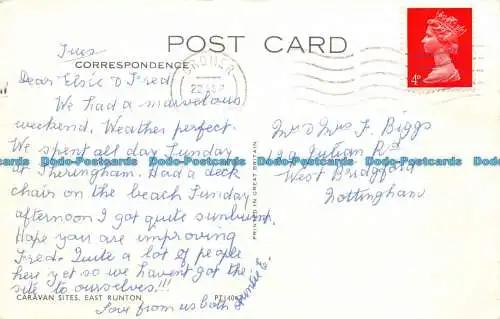 POST CARD
Tues
CORRESPONDENCE
CROMER
Dear Elsie & Fred
We had a marvelous
weekend. Weather perfect.
We spent all day Sunday
at Sheringham. Had a deck
chair on the beach Sunday
afternoon I got quite sunburnt.
Hope you are improving
Fred. Quite a lot of people
here yet so we havent got the
site to ourselves!!!
Love from us both
Auntie E.
CARAVAN SITES, EAST RUNTON
PRINTED IN GREAT BRITAIN
4D
Mr & Mrs F. Biggs
Julian Rd
West Bridgford
Nottingham
Dodo-Postcards Dodo-Postcards Dodo-Postcards Dodo-Postcards Dodo-Postcards